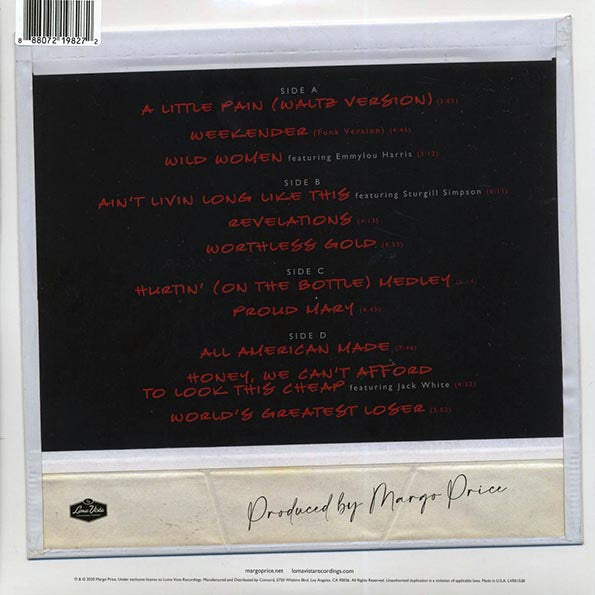 8 88072 19827 2
SIDE A
A LITTLE PAIN (WALTZ VERSION) (3:05)
WEEKENDER (Funk Version) (4:45)
WILD WOMEN featuring Emmylou Harris (3:12)
SIDE B
AIN'T LIVIN LONG LIKE THIS featuring Sturgill Simpson (6:11)
REVELATIONS (4:13)
WORTHLESS GOLD (4:52)
SIDE C
HURTIN' (ON THE BOTTLE) MEDLEY
PROUD MARY (4:43)
SIDE D
ALL AMERICAN MADE (7:46)
HONEY, WE CAN'T AFFORD
TO LOOK THIS CHEAP featuring Jack White (4:32)
WORLD'S GREATEST LOSER (3:02)
Loma Vista
Produced by Margo Price
margoprice.net lomavistarecordings.com
℗ & © 2020 Margo Price. Under exclusive license to Loma Vista Recordings. Manufactured and Distributed by Concord, 5750 Wilshire Blvd, Los Angeles, CA 90036. All Rights Reserved. Unauthorized duplication is a violation of applicable laws. Made in U.S.A. LVR01528